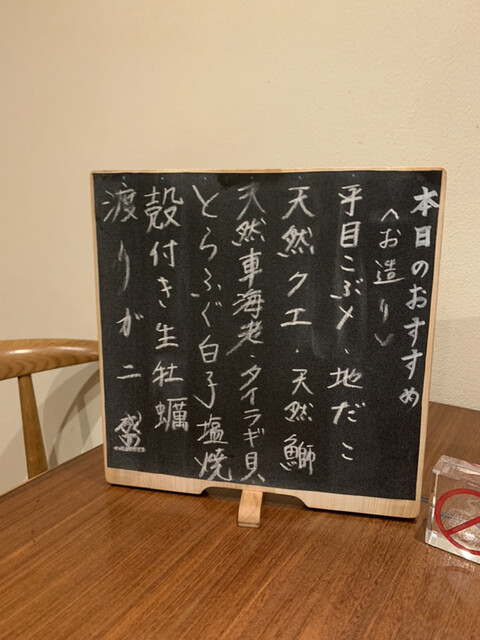 本日のおすすめ
〈お造り〉
平目こぶ〆・地だこ
天然クエ・天然鰤
天然車海老・タイラギ貝
とらふぐ白子塩焼
殻付き生牡蠣
渡りガニ